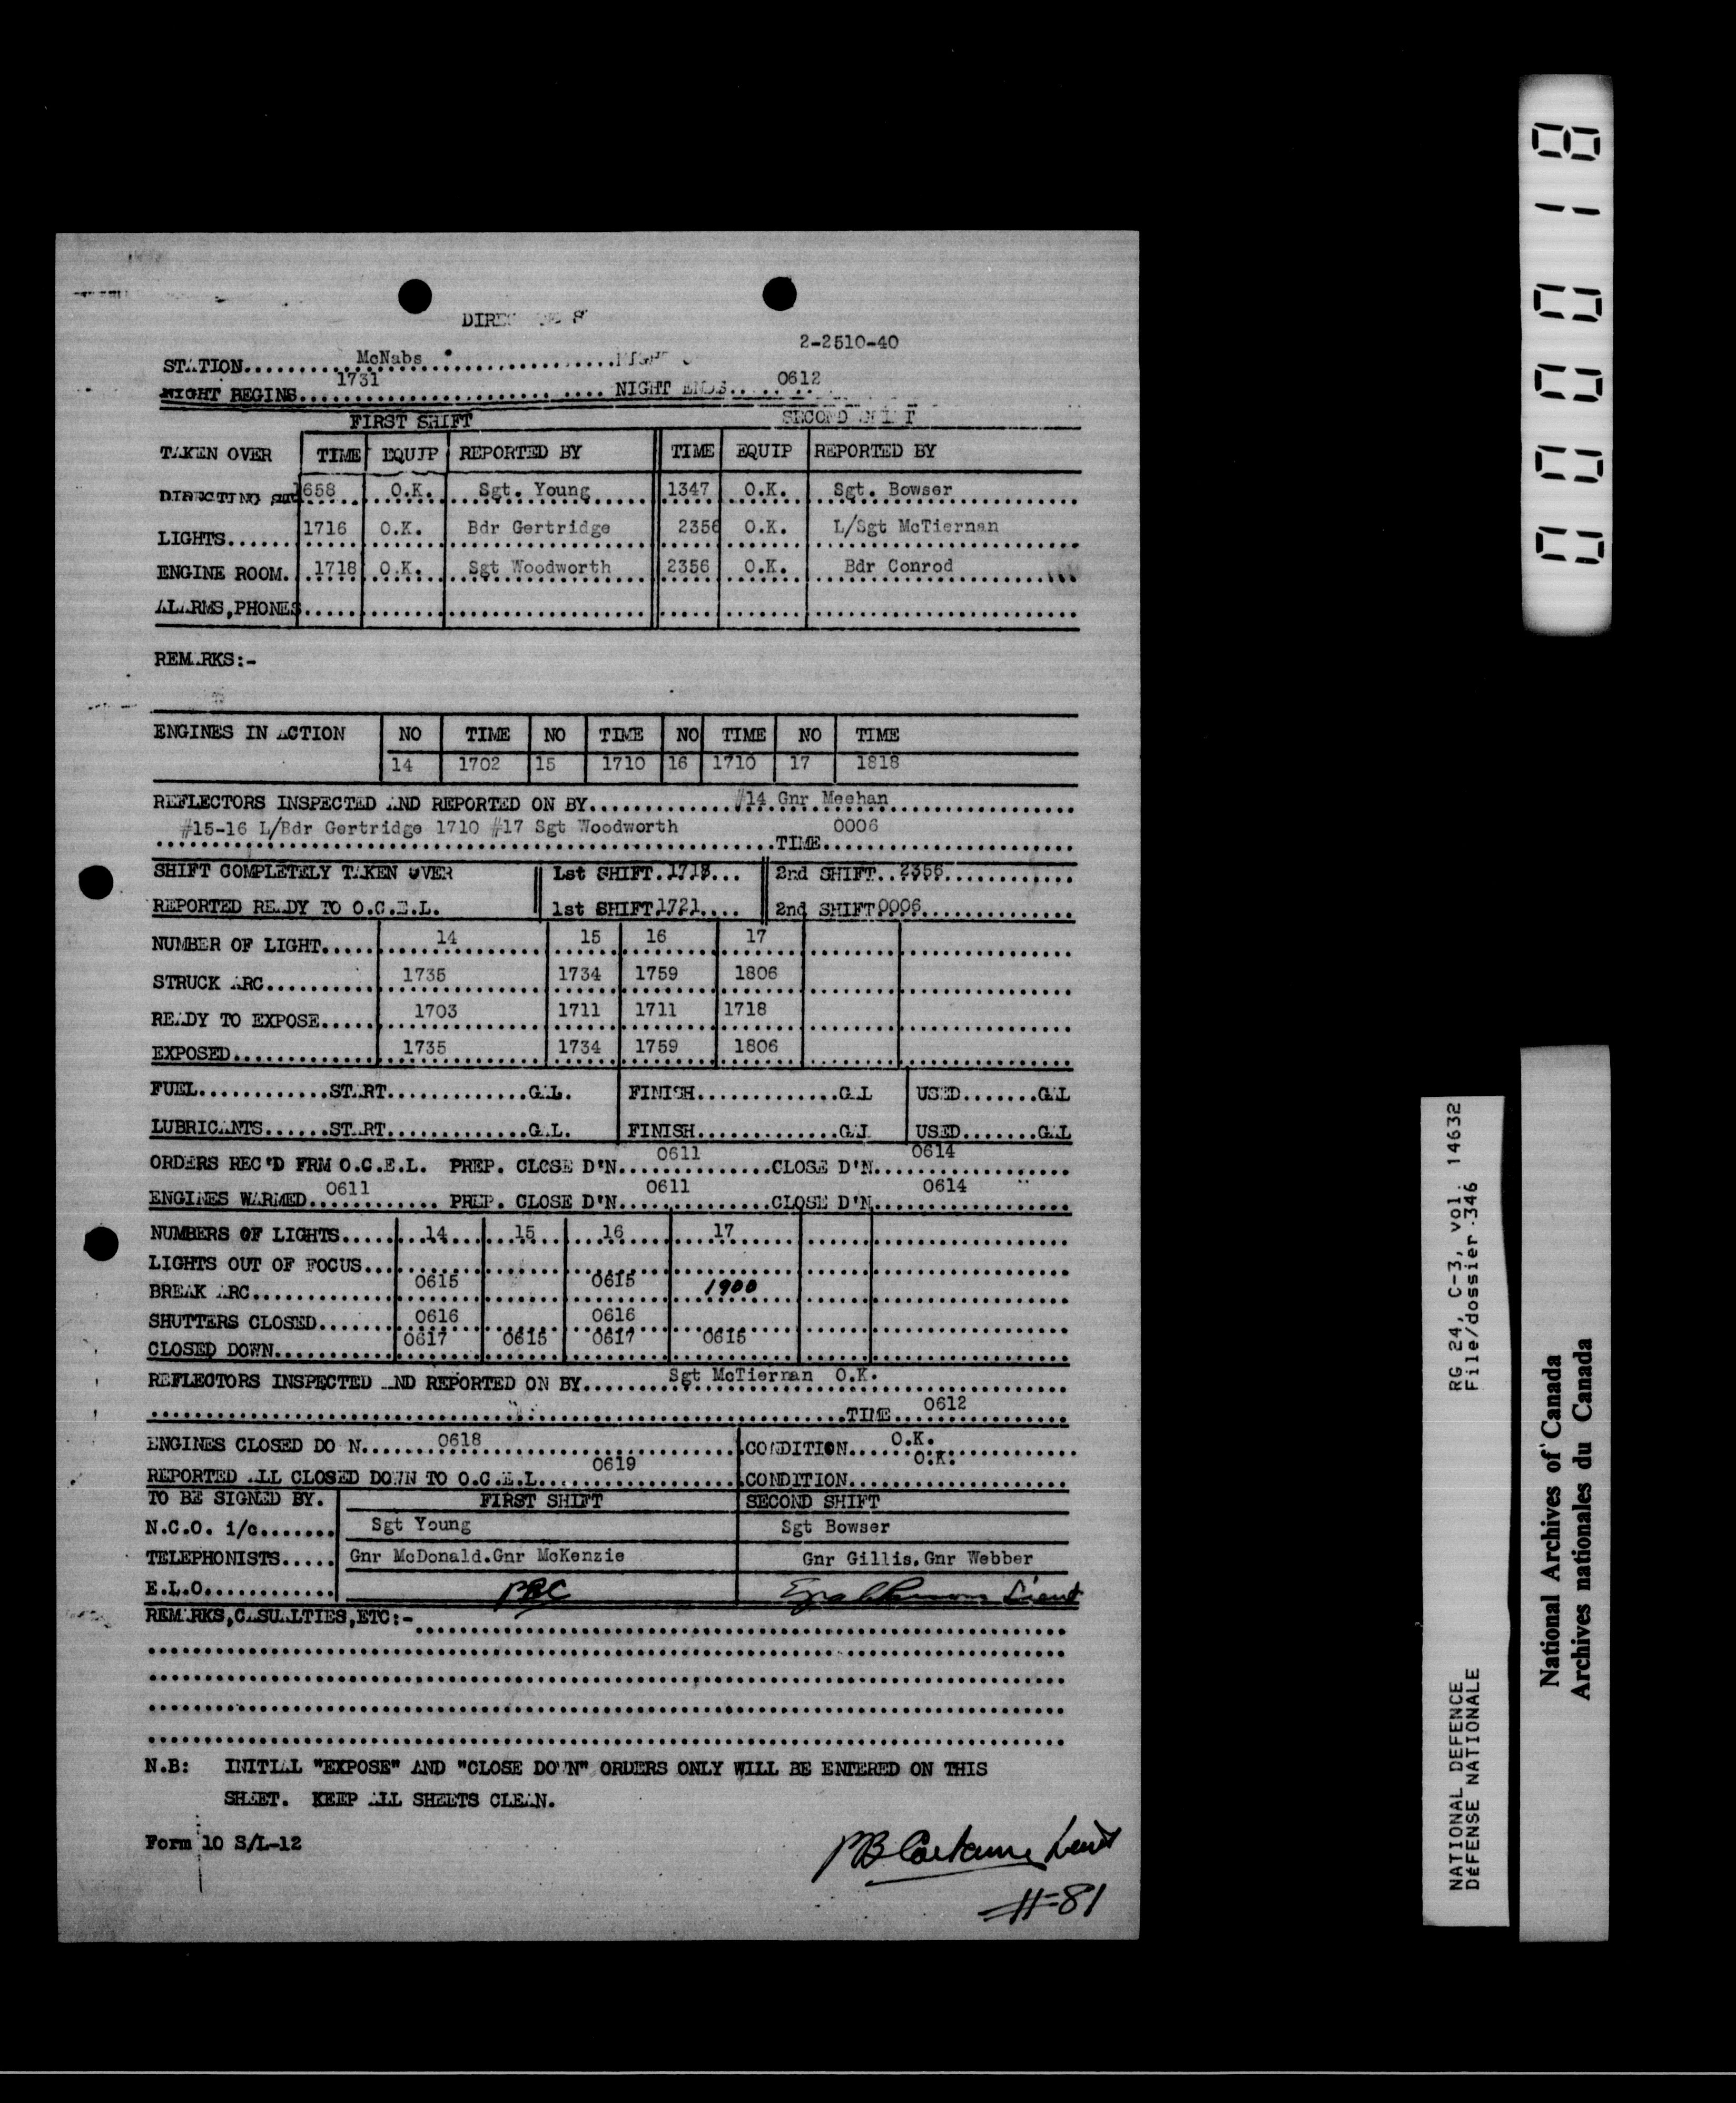 2-2510-40
STATION.......McNabs
NIGHT BEGINS 1731 NIGHT ENDS 0612
FIRST SHIFT SECOND SHIFT
TAKEN OVER TIME EQUIP REPORTED BY TIME EQUIP REPORTED BY
DIRECTING 1658 O.K. Sgt. Young 1347 O.K. Sgt. Bowser
LIGHTS...... 1716 O.K. Bdr Gertridge 2356 O.K. L/Sgt McTiernan
ENGINE ROOM. 1718 O.K. Sgt Woodworth 2356 O.K. Bdr Conrod
ALARMS,PHONES
REMARKS:-
ENGINES IN ACTION NO TIME NO TIME NO TIME NO TIME
14 1702 15 1710 16 1710 17 1818
REFLECTORS INSPECTED AND REPORTED ON BY......#14 Gnr Meehan
#15-16 L/Bdr Gertridge 1710 #17 Sgt Woodworth TIME 0006
SHIFT COMPLETELY TAKEN OVER 1st SHIFT.1718... 2nd SHIFT..2356
REPORTED READY TO O.C.E.L. 1st SHIFT 1721.... 2nd SHIFT 0006
NUMBER OF LIGHT..... 14 15 16 17
STRUCK ARC.......... 1735 1734 1759 1806
READY TO EXPOSE..... 1703 1711 1711 1718
EXPOSED............. 1735 1734 1759 1806
FUEL............START.............GAL. FINISH.............GAL USED.......GAL
LUBRICANTS......START.............GAL. FINISH.............GAL USED.......GAL
ORDERS REC'D FRM O.C.E.L. PREP. CLOSE D'N 0611 CLOSE D'N 0614
ENGINES WARMED 0611 PREP. CLOSE D'N 0611 CLOSE D'N 0614
NUMBERS OF LIGHTS..... 14 15 16 17
LIGHTS OUT OF FOCUS...
BREAK ARC............. 0615 0615 1900
SHUTTERS CLOSED....... 0616 0616
CLOSED DOWN........... 0617 0615 0617 0615
REFLECTORS INSPECTED AND REPORTED ON BY........Sgt McTiernan O.K.
TIME 0612
ENGINES CLOSED DOWN 0618 CONDITION O.K.
REPORTED ALL CLOSED DOWN TO O.C.E.L. 0619 CONDITION O.K.
TO BE SIGNED BY. FIRST SHIFT SECOND SHIFT
N.C.O. i/c....... Sgt Young Sgt Bowser
TELEPHONISTS..... Gnr McDonald.Gnr McKenzie Gnr Gillis.Gnr Webber
E.L.O............ PBC Lieut
REMARKS,CASUALTIES,ETC:-
N.B: INITIAL "EXPOSE" AND "CLOSE DOWN" ORDERS ONLY WILL BE ENTERED ON THIS
SHEET. KEEP ALL SHEETS CLEAN.
Form 10 S/L-12
#81
0000018
RG 24, C-3, vol. 14632
File/dossier 346
NATIONAL DEFENCE
DÉFENSE NATIONALE
National Archives of Canada
Archives nationales du Canada